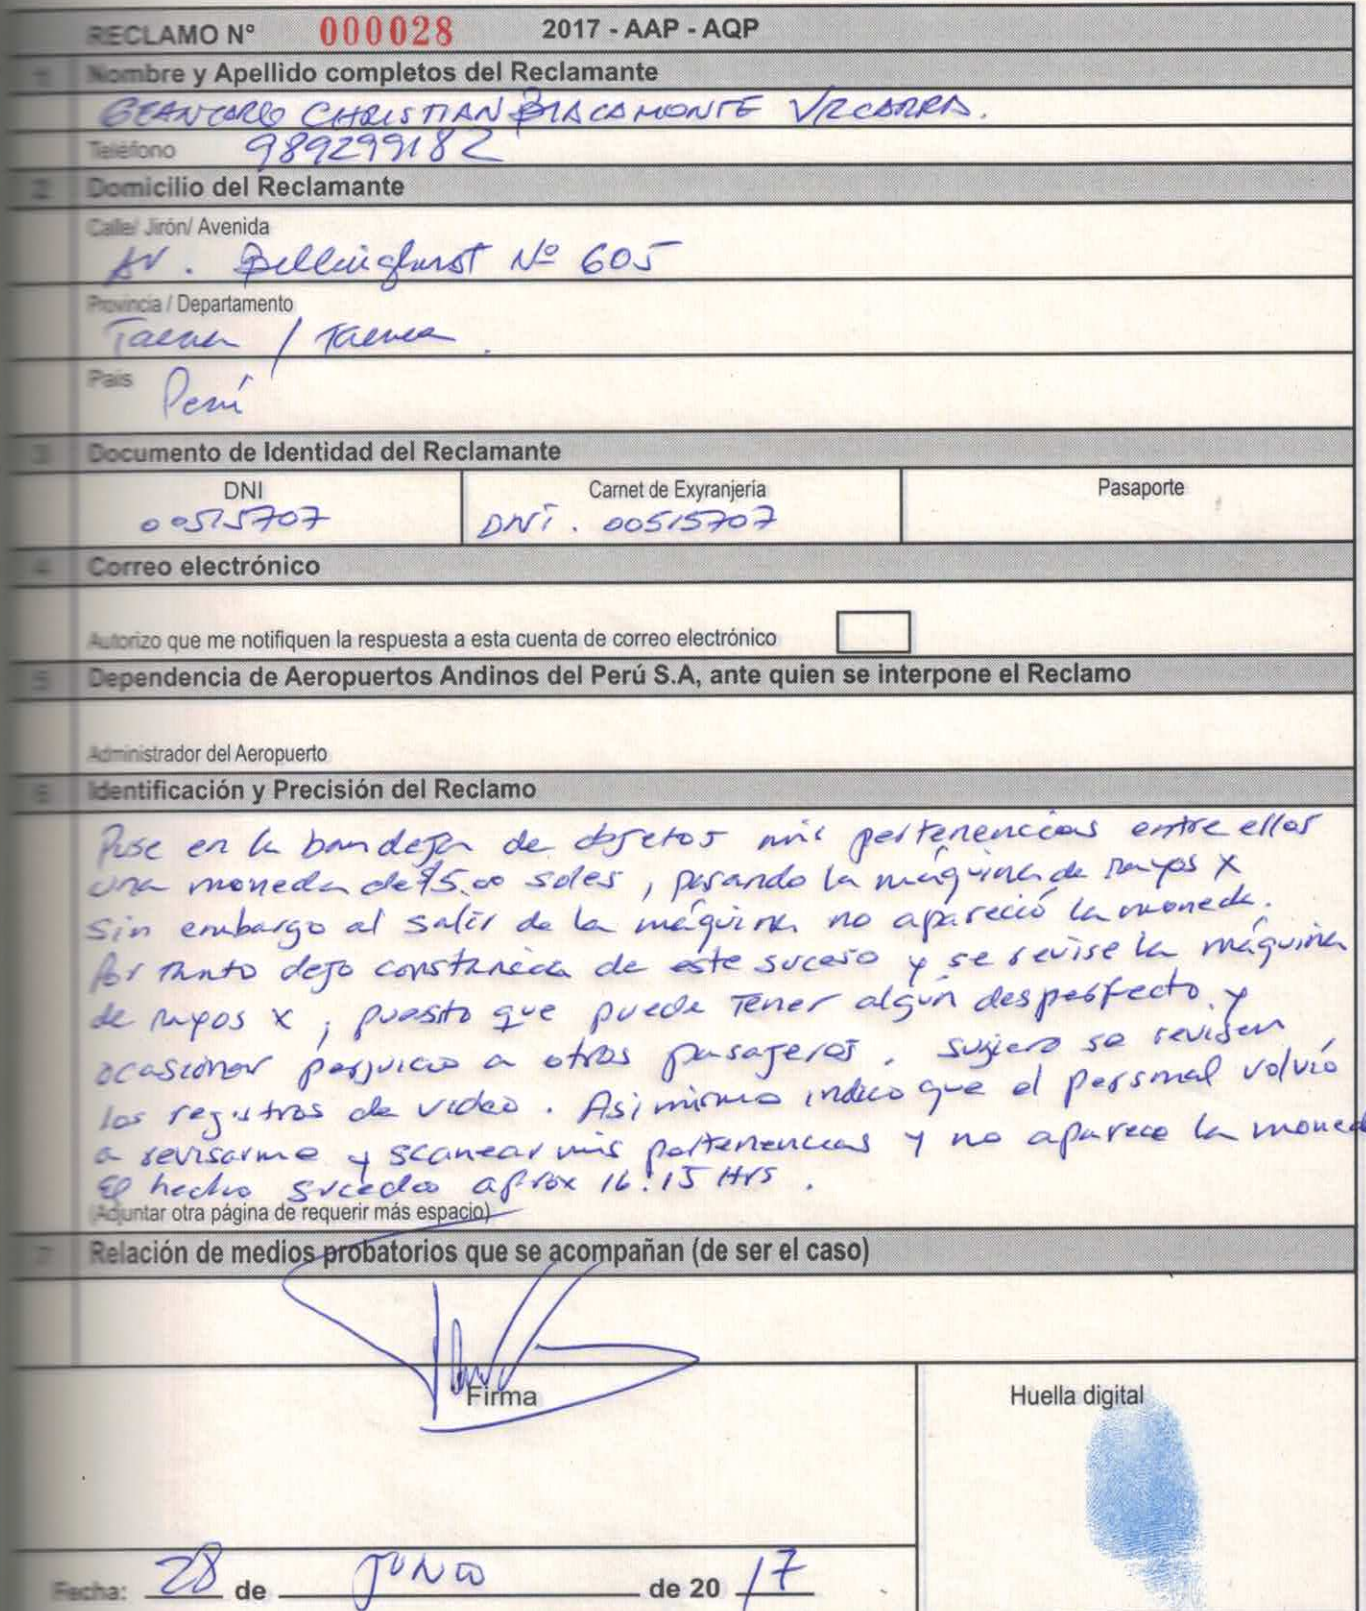 RECLAMO N° 000028 2017 - AAP - AQP
1 Nombre y Apellido completos del Reclamante
GEANCARLO CHRISTIAN BRACAMONTE VIZCARRA.
Teléfono 989299182
2 Domicilio del Reclamante
Calle/ Jirón/ Avenida
AV. Billinghurst Nº 605
Provincia / Departamento
Tacna / Tacna.
País Perú
3 Documento de Identidad del Reclamante
DNI Carnet de Exyranjeria Pasaporte
00515707 DNI. 00515707
4 Correo electrónico
Autorizo que me notifiquen la respuesta a esta cuenta de correo electrónico
5 Dependencia de Aeropuertos Andinos del Perú S.A, ante quien se interpone el Reclamo
Administrador del Aeropuerto
6 Identificación y Precisión del Reclamo
Puse en la bandeja de objetos mis pertenencias entre ellas
una moneda de 5.00 soles, pasando la máquina de rayos X
Sin embargo al salir de la máquina no apareció la moneda.
Por tanto dejo constancia de este suceso y se revise la máquina
de rayos X, puesto que puede tener algún desperfecto y
ocasionar perjuicio a otros pasajeros. Sugiero se revisen
los registros de video. Asimismo indico que el personal volvió
a revisarme y scanear mis pertenencias y no aparece la moneda
El hecho sucedio aprox 16:15 Hrs.
(Adjuntar otra página de requerir más espacio)
7 Relación de medios probatorios que se acompañan (de ser el caso)
Firma Huella digital
Fecha: 28 de JUNIO de 20 17